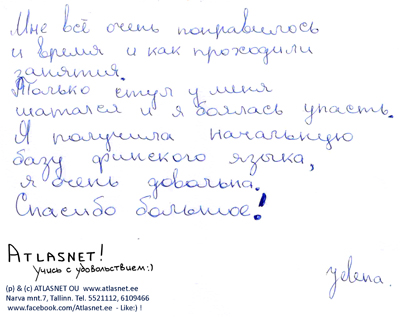 Мне всё очень понравилось
и время и как проходили
занятия.
Только стул у меня
шатался и я боялась упасть.
Я получила начальную
базу финского языка,
я очень довольна.
Спасибо большое!
ATLASNET!
Учись с удовольствием:)
(p) & (c) ATLASNET OU www.atlasnet.ee
Narva mnt.7, Tallinn. Tel. 5521112, 6109466
www.facebook.com/Atlasnet.ee - Like:) !
Jelena.